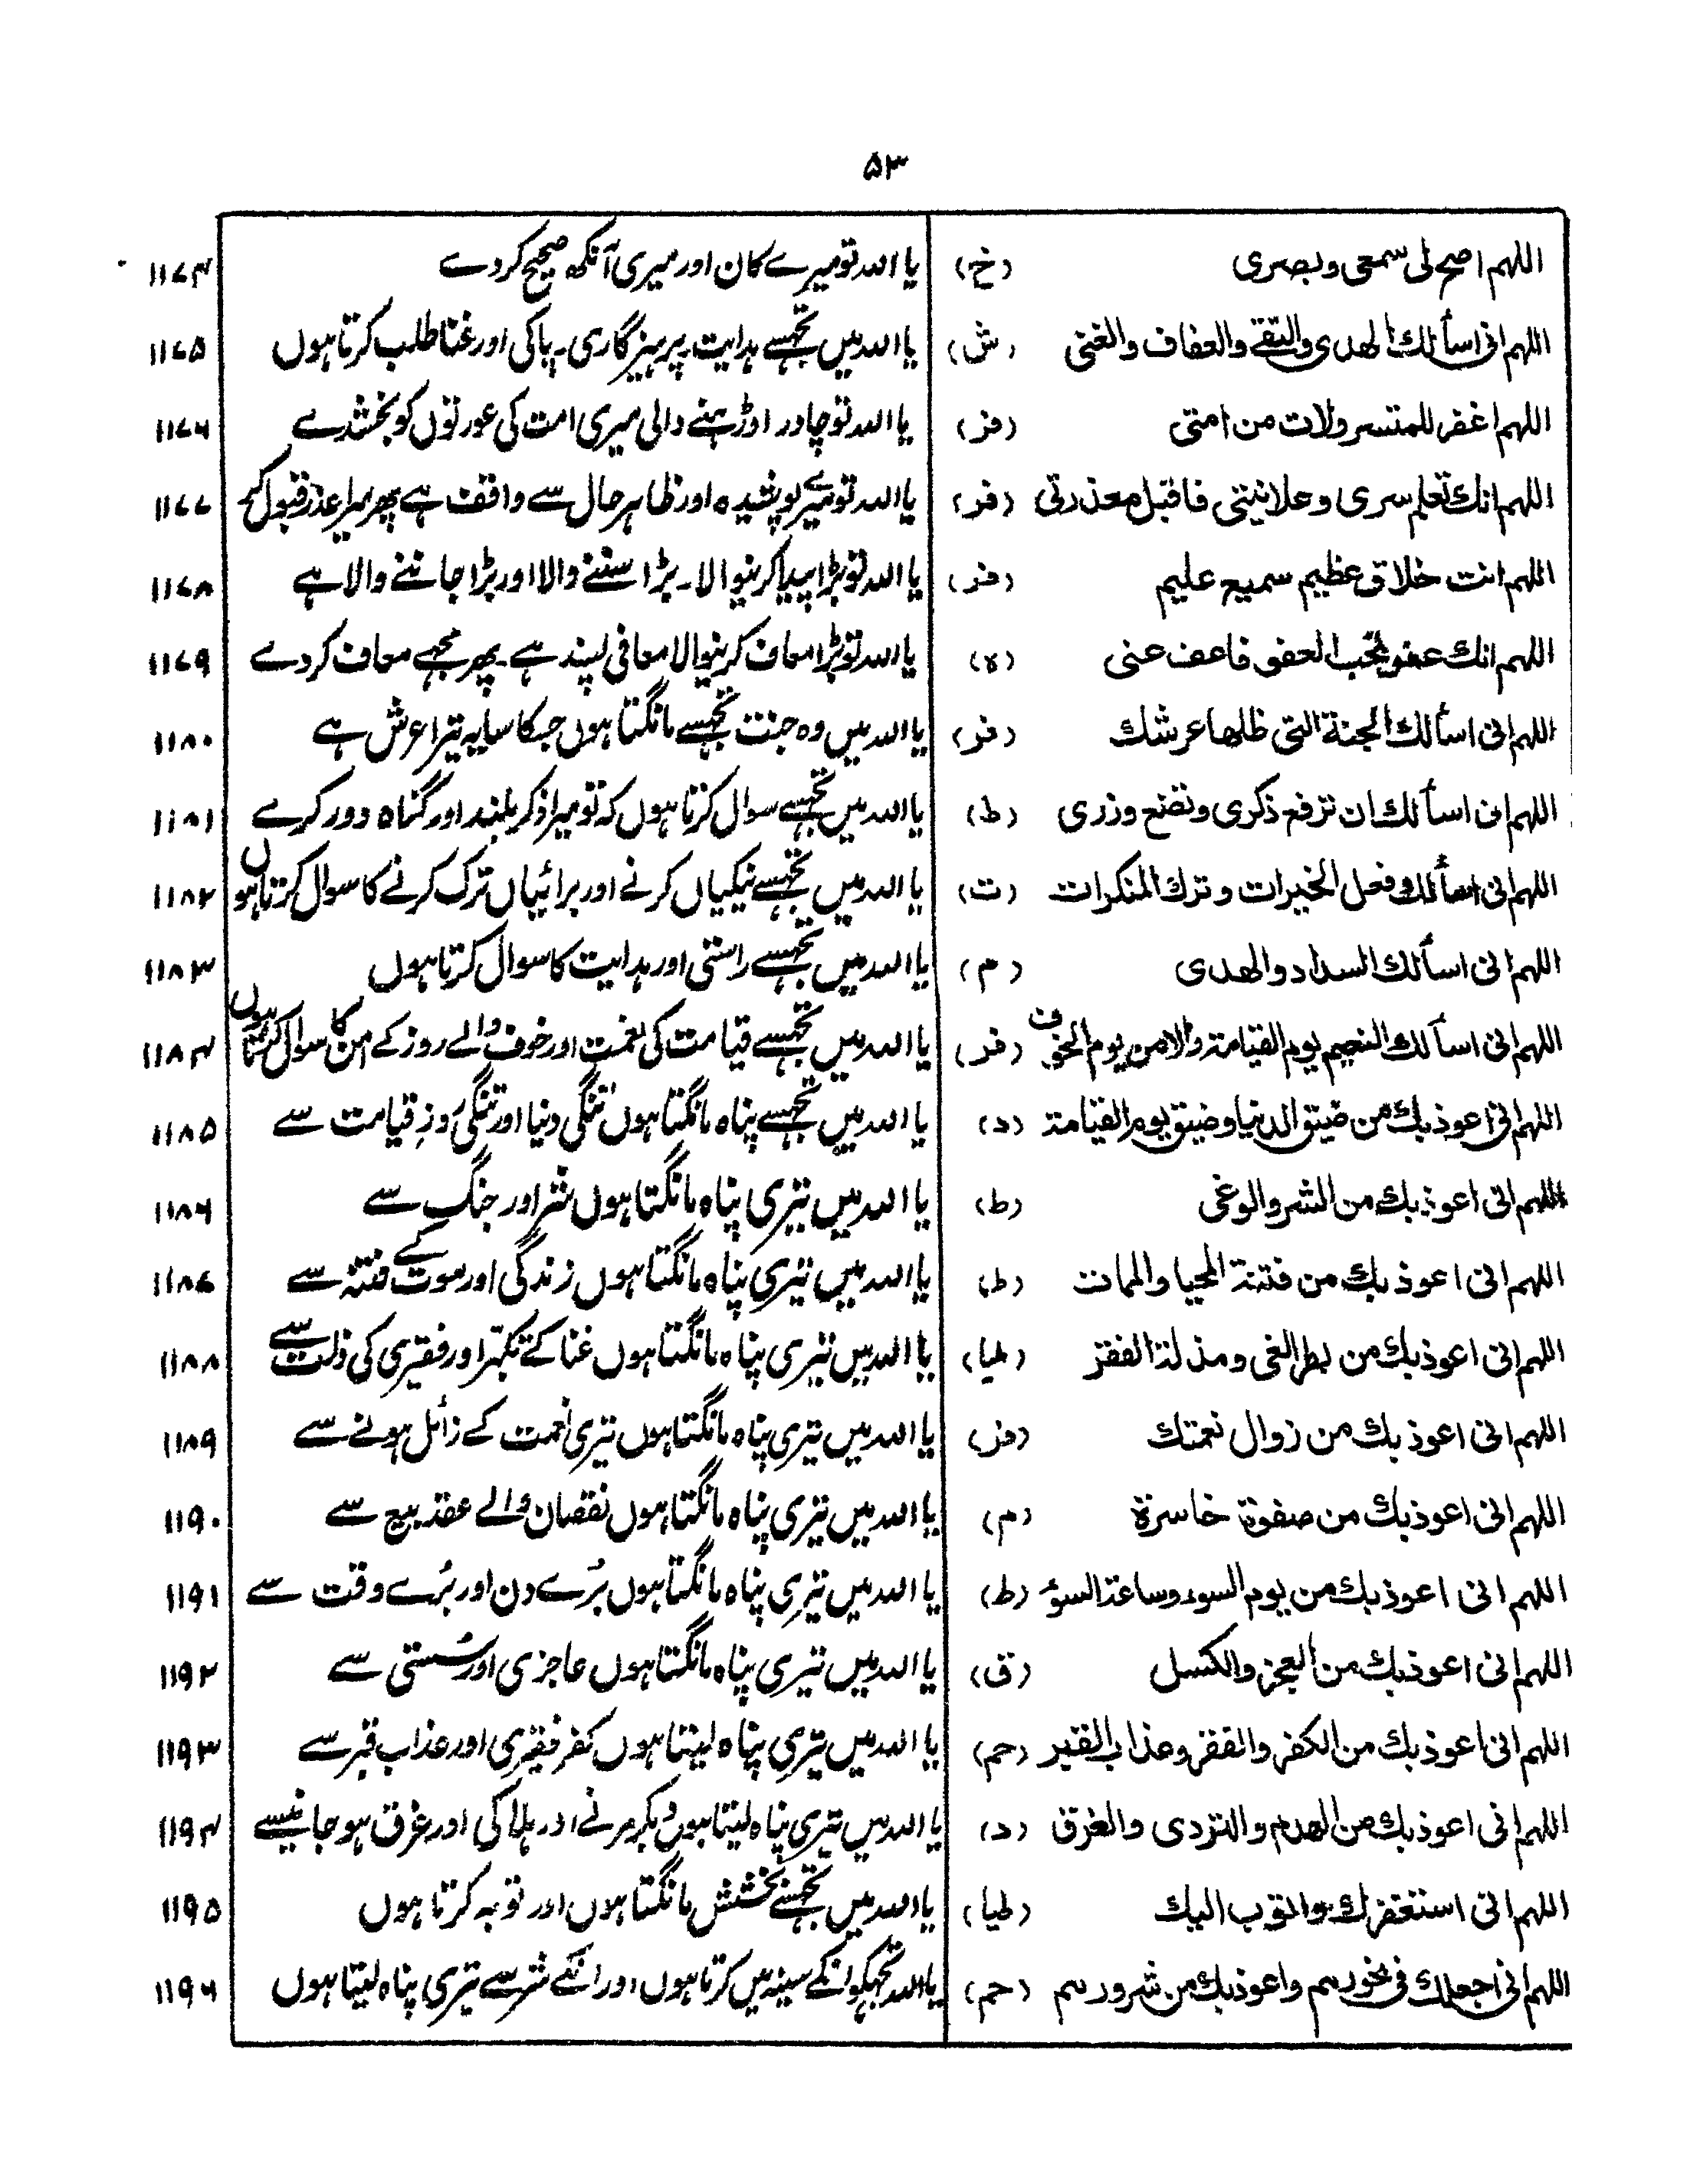 ۵۳
اللهم اصح لی سمعی وبصری (خ) یا اللہ تو میرے کان اور میری آنکھ صحیح کردے ۱۱۷۴
اللهم انی اسألك الهدی والتقے والعفاف والغنی (ش) یا اللہ میں تجہسے ہدایت۔ پرہیزگاری۔ پاکی اور غنا طلب کرتا ہوں ۱۱۷۵
اللهم اغفر للمتسرولات من امتی (فر) یا اللہ تو چادر اوڑہنے والی میری امت کی عورتوں کو بخشدے ۱۱۷۶
اللهم انك تعلم سری وعلانیتی فاقبل معذرتی (فر) یا اللہ تو میرے پوشیدہ اور ظاہر حال سے واقف ہے پھر میرا عذر قبول کر ۱۱۷۷
اللهم انت خلاق عظیم سمیع علیم (فر) یا اللہ تو بڑا پیدا کرنیوالا۔ بڑا سننے والا اور بڑا جاننے والا ہے ۱۱۷۸
اللهم انك عفو تحب العفو فاعف عنی (ہ) یا اللہ تو بڑا معاف کرنیوالا معافی پسند ہے۔ پھر مجہے معاف کردے ۱۱۷۹
اللهم انی اسألك الجنة التی ظلها عرشك (فر) یا اللہ میں وہ جنت تجہسے مانگتا ہوں جسکا سایہ تیرا عرش ہے ۱۱۸۰
اللهم انی اسألك ان ترفع ذکری وتضع وزری (ط) یا اللہ میں تجہسے سوال کرتا ہوں کہ تو میرا ذکر بلند اور گناہ دور کرے ۱۱۸۱
اللهم انی اسألك فعل الخیرات وترك المنکرات (ت) یا اللہ میں تجہسے نیکیاں کرنے اور برائیاں ترک کرنے کا سوال کرتا ہوں ۱۱۸۲
اللهم انی اسألك السداد والهدی (م) یا اللہ میں تجہسے راستی اور ہدایت کا سوال کرتا ہوں ۱۱۸۳
اللهم انی اسألك النعیم یوم القیامة والامن یوم الخوف (فر) یا اللہ میں تجہسے قیامت کی نعمت اور خوف والے روز کے امن کا سوال کرتا ہوں ۱۱۸۴
اللهم انی اعوذ بك من ضیق الدنیا وضیق یوم القیامة (د) یا اللہ میں تجہسے پناہ مانگتا ہوں تنگی دنیا اور تنگی روز قیامت سے ۱۱۸۵
اللهم انی اعوذ بك من الشر والوغی (ط) یا اللہ میں تیری پناہ مانگتا ہوں شر اور جنگ سے ۱۱۸۶
اللهم انی اعوذ بك من فتنة المحیا والممات (ط) یا اللہ میں تیری پناہ مانگتا ہوں زندگی اور موت کے فتنہ سے ۱۱۸۷
اللهم انی اعوذ بك من بطر الغی ومذلة الفقر (طیا) یا اللہ میں تیری پناہ مانگتا ہوں غنا کے تکبّر اور فقیری کی ذلت سے ۱۱۸۸
اللهم انی اعوذ بك من زوال نعمتك (فر) یا اللہ میں تیری پناہ مانگتا ہوں تیری نعمت کے زائل ہونے سے ۱۱۸۹
اللهم انی اعوذ بك من صفوة خاسرة (م) یا اللہ میں تیری پناہ مانگتا ہوں نقصان والے عقد بیع سے ۱۱۹۰
اللهم انی اعوذ بك من یوم السوء وساعة السوء (ط) یا اللہ میں تیری پناہ مانگتا ہوں بُرے دن اور بُرے وقت سے ۱۱۹۱
اللهم انی اعوذ بك من العجز والکسل (ق) یا اللہ میں تیری پناہ مانگتا ہوں عاجزی اور سُستی سے ۱۱۹۲
اللهم انی اعوذ بك من الکفر والفقر وعذاب القبر (حم) یا اللہ میں تیری پناہ لیتا ہوں کفر فقیری اور عذاب قبر سے ۱۱۹۳
اللهم انی اعوذ بك من الهدم والتردی والغرق (د) یا اللہ میں تیری پناہ لیتا ہوں دبکر مرنے اور ہلاکی اور غرق ہوجانیسے ۱۱۹۴
اللهم انی استغفرك واتوب الیك (طیا) یا اللہ میں تجہسے بخشش مانگتا ہوں اور توبہ کرتا ہوں ۱۱۹۵
اللهم انی اجعلك فی نحورہم واعوذ بك من شرورہم (حم) یا اللہ تجہکو انکے سینہ میں کرتا ہوں اور انکے شر سے تیری پناہ لیتا ہوں ۱۱۹۶